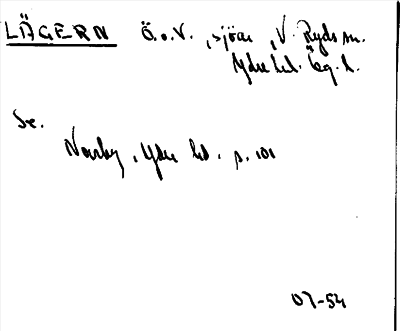 LÄGERN Ö.o.V. , sjöar , V. Ryds sn.
Ydre hd. Ög. l.
Se.
Norby, Ydre hd. s. 101
07-54